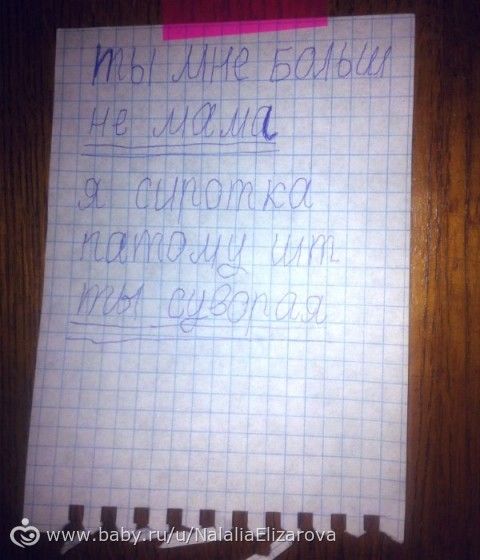 ты мне больш
не мама
я сиротка
патому шт
ты суворая
www.baby.ru/u/NalaliaElizarova